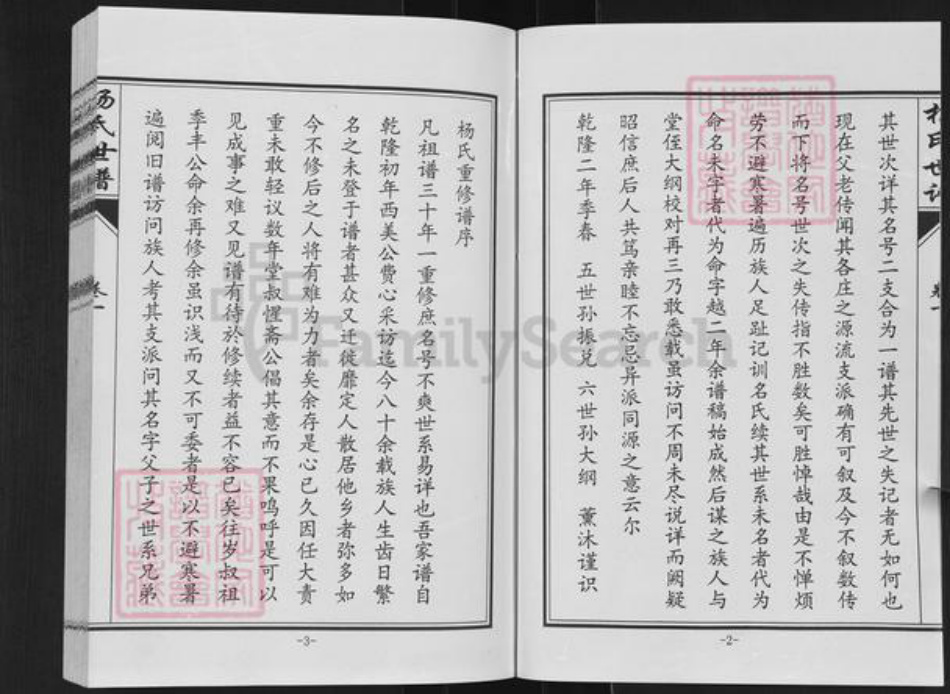 其世次详其名号二支合为一谱其先世之失记者无如何也
现在父老传闻其各庄之源流支派确有可叙及今不叙数传
而下将名号世次之失传指不胜数矣可胜悼哉由是不惮烦
劳不避寒暑遍历族人足趾记训名氏续其世系未名者代为
命名未字者代为命字越二年余谱稿始成然后谋之族人与
堂侄大纲校对再三乃敢悉载虽访问不周未尽说详而阙疑
昭信庶后人共笃亲睦不忘忌异派同源之意云尔
乾隆二年季春 五世孙振兑 六世孙大纲 薰沐谨识
-2-
杨氏世谱
卷一
杨氏重修谱序
凡祖谱三十年一重修庶名号不爽世系易详也吾家谱自
乾隆初年西美公费心采访迄今八十余载族人生齿日繁
名之未登于谱者甚众又迁徙靡定人散居他乡者弥多如
今不修后之人将有难为力者矣余存是心已久因任大责
重未敢轻议数年堂叔惺斋公倡其意而不果呜呼是可以
见成事之难又见谱有待於修续者益不容已矣往岁叔祖
季丰公命余再修余虽识浅而又不可委者是以不避寒暑
遍阅旧谱访问族人考其支派问其名字父子之世系兄弟
-3-
FamilySearch